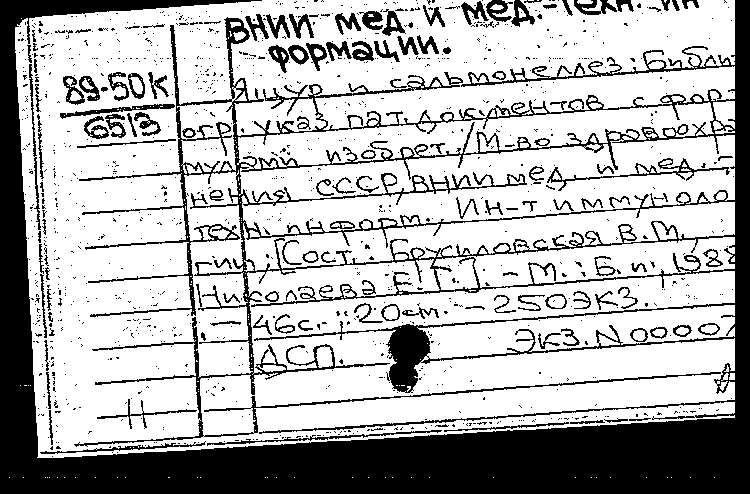 ВНИИ мед. и мед.-техн. ин
формации.
89-50К
6513
Ящур и сальмонеллез: Библи
огр. указ. пат. документов с фор
мулами изобрет. / М-во здравоохра
нения СССР, ВНИИ мед. и мед.-
техн. информ., Ин-т иммуноло
гии; [Сост.: Брусиловская В.М.,
Николаева Е.Г.]. - М.: Б. и., 1988
. - 46с.; 20см. - 250экз.
ДСП. Экз. N 00007
11